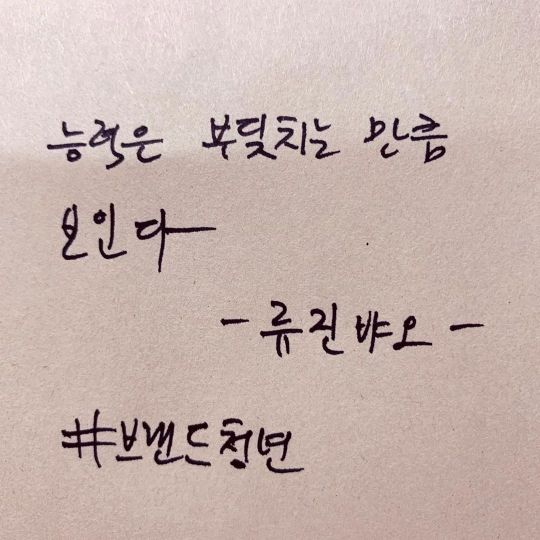 능력은 부딪치는 만큼
보인다
- 류진뱌오 -
#브랜드청년